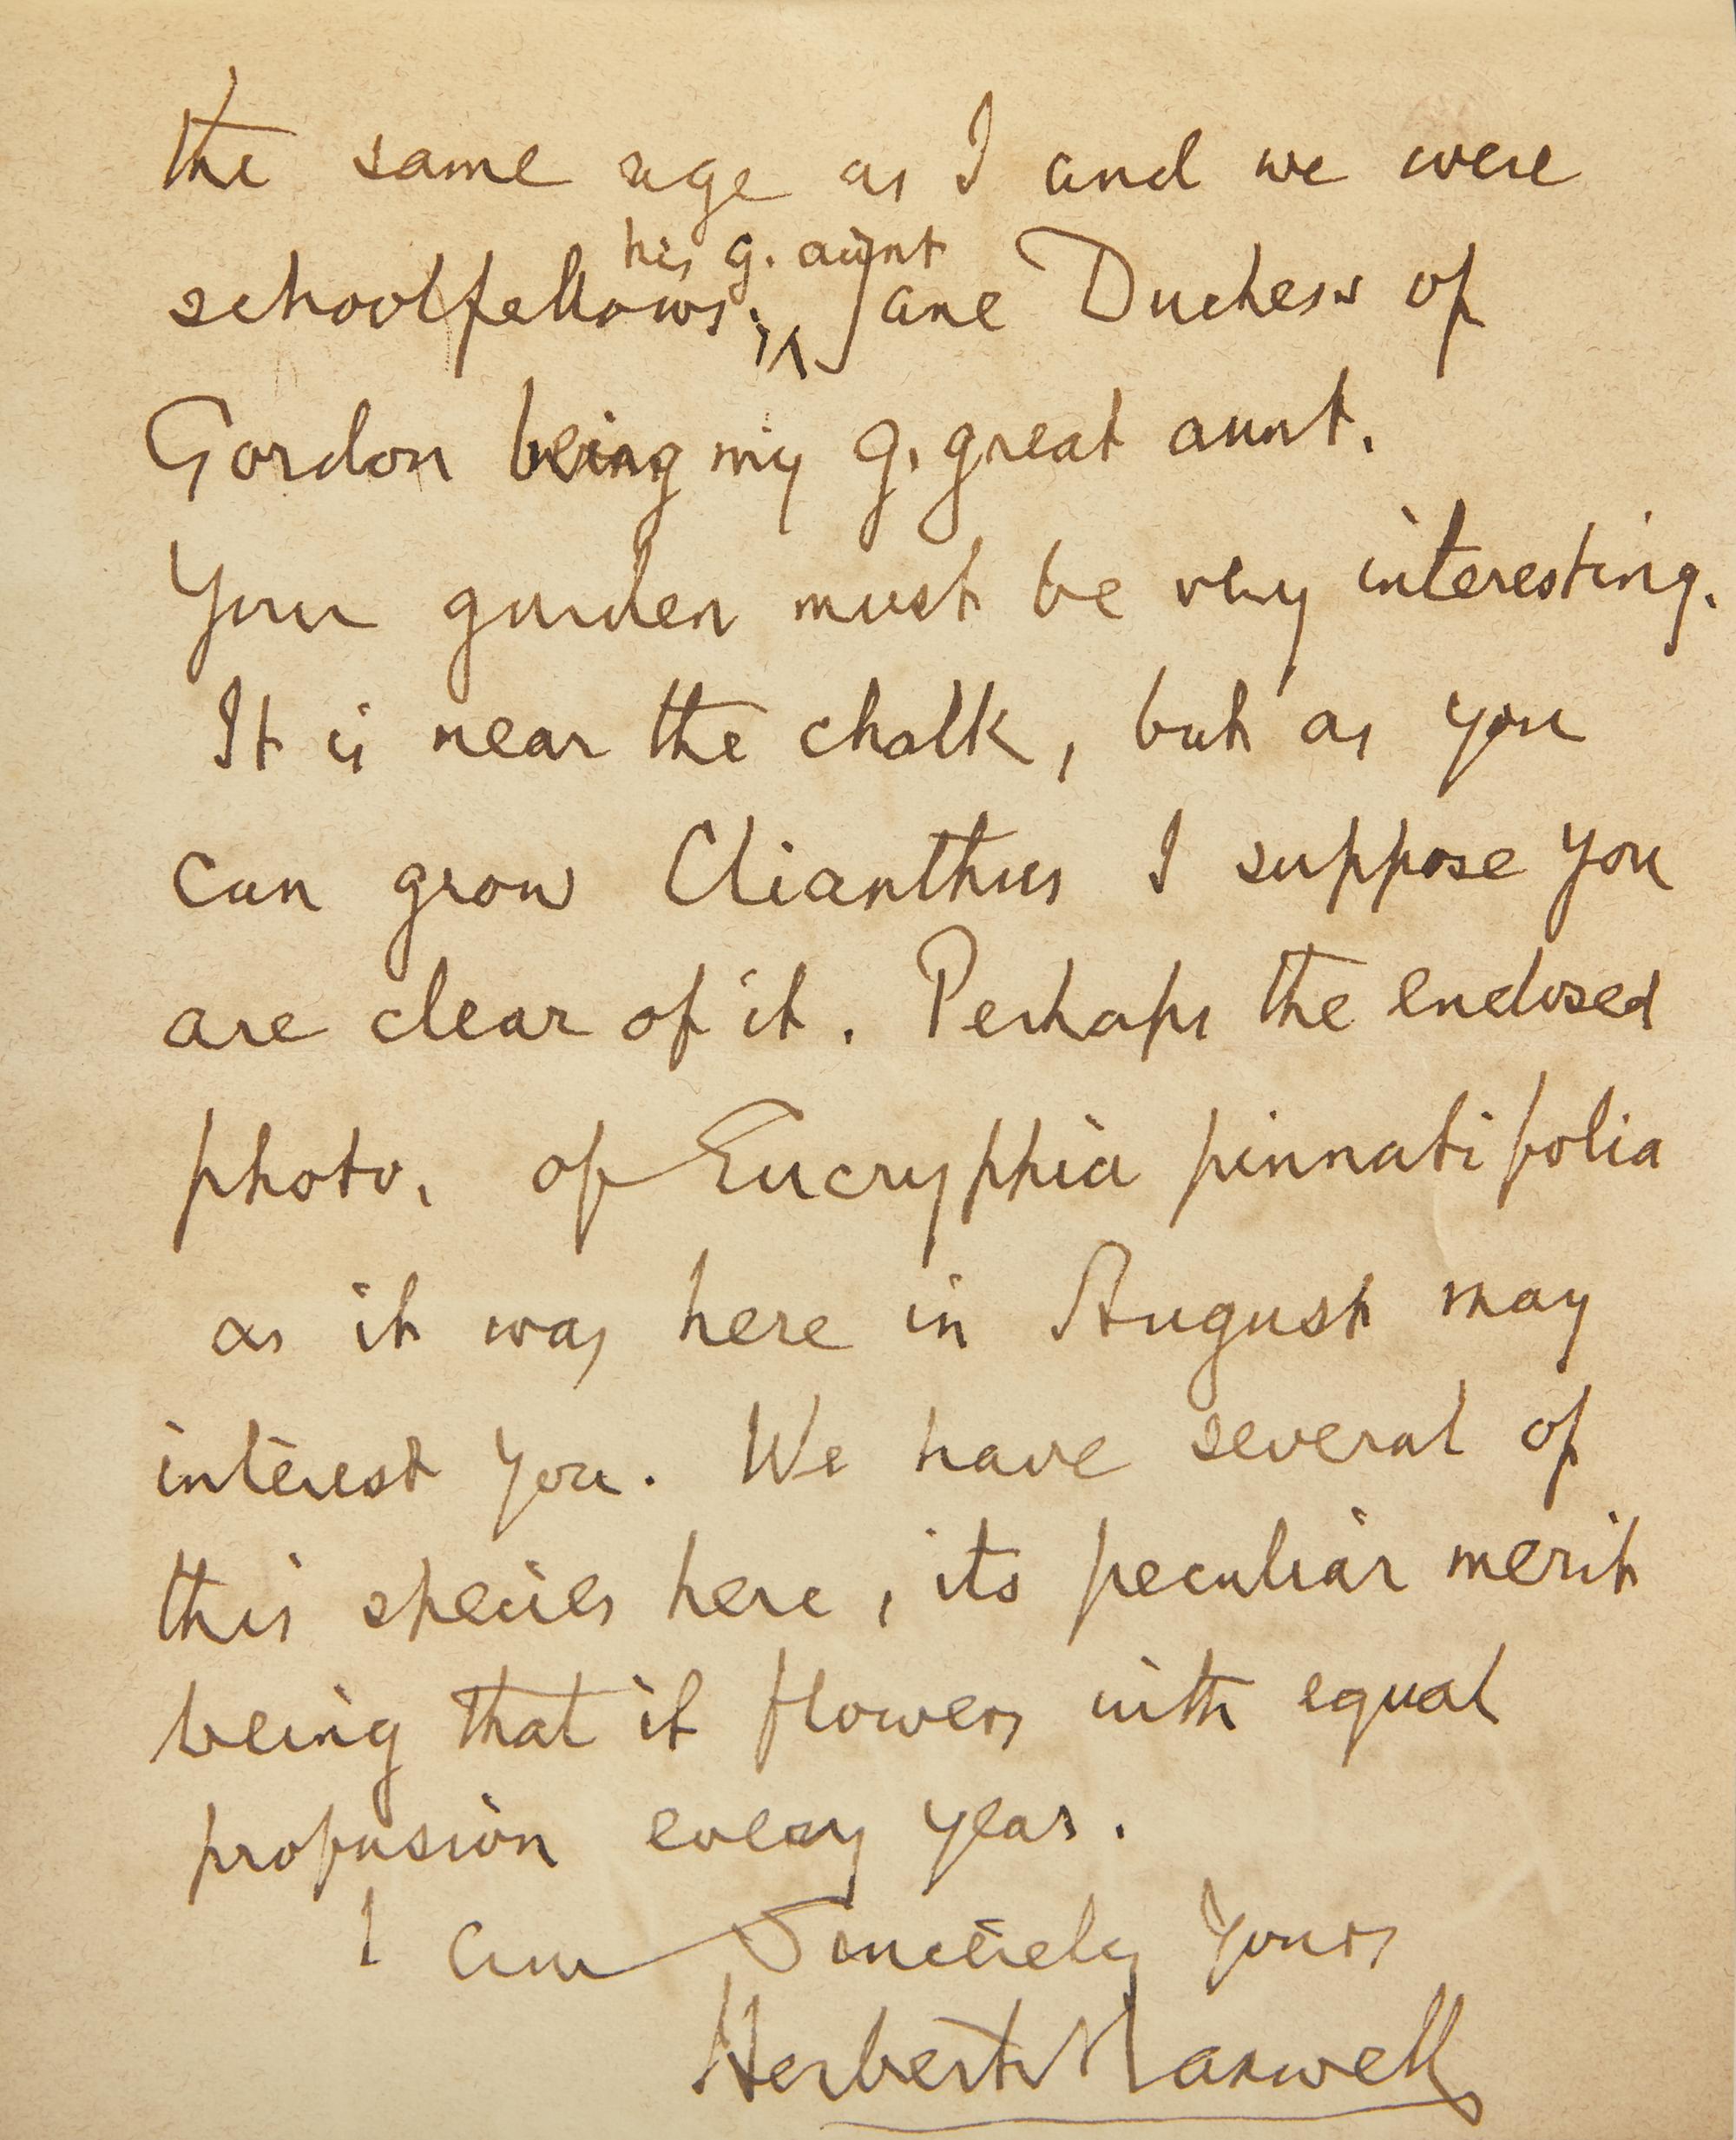 the same age as I and we were
his g. aunt
schoolfellows; Jane Duchess of
Gordon being my g. great aunt.
Your garden must be very interesting.
It is near the chalk, but as you
can grow Clianthus I suppose you
are clear of it. Perhaps the enclosed
photo. of Eucryphia pinnatifolia
as it was here in August may
interest you. We have several of
this species here, its peculiar merit
being that it flowers with equal
profusion every year.
I am Sincerely Yours
Herbert Maxwell